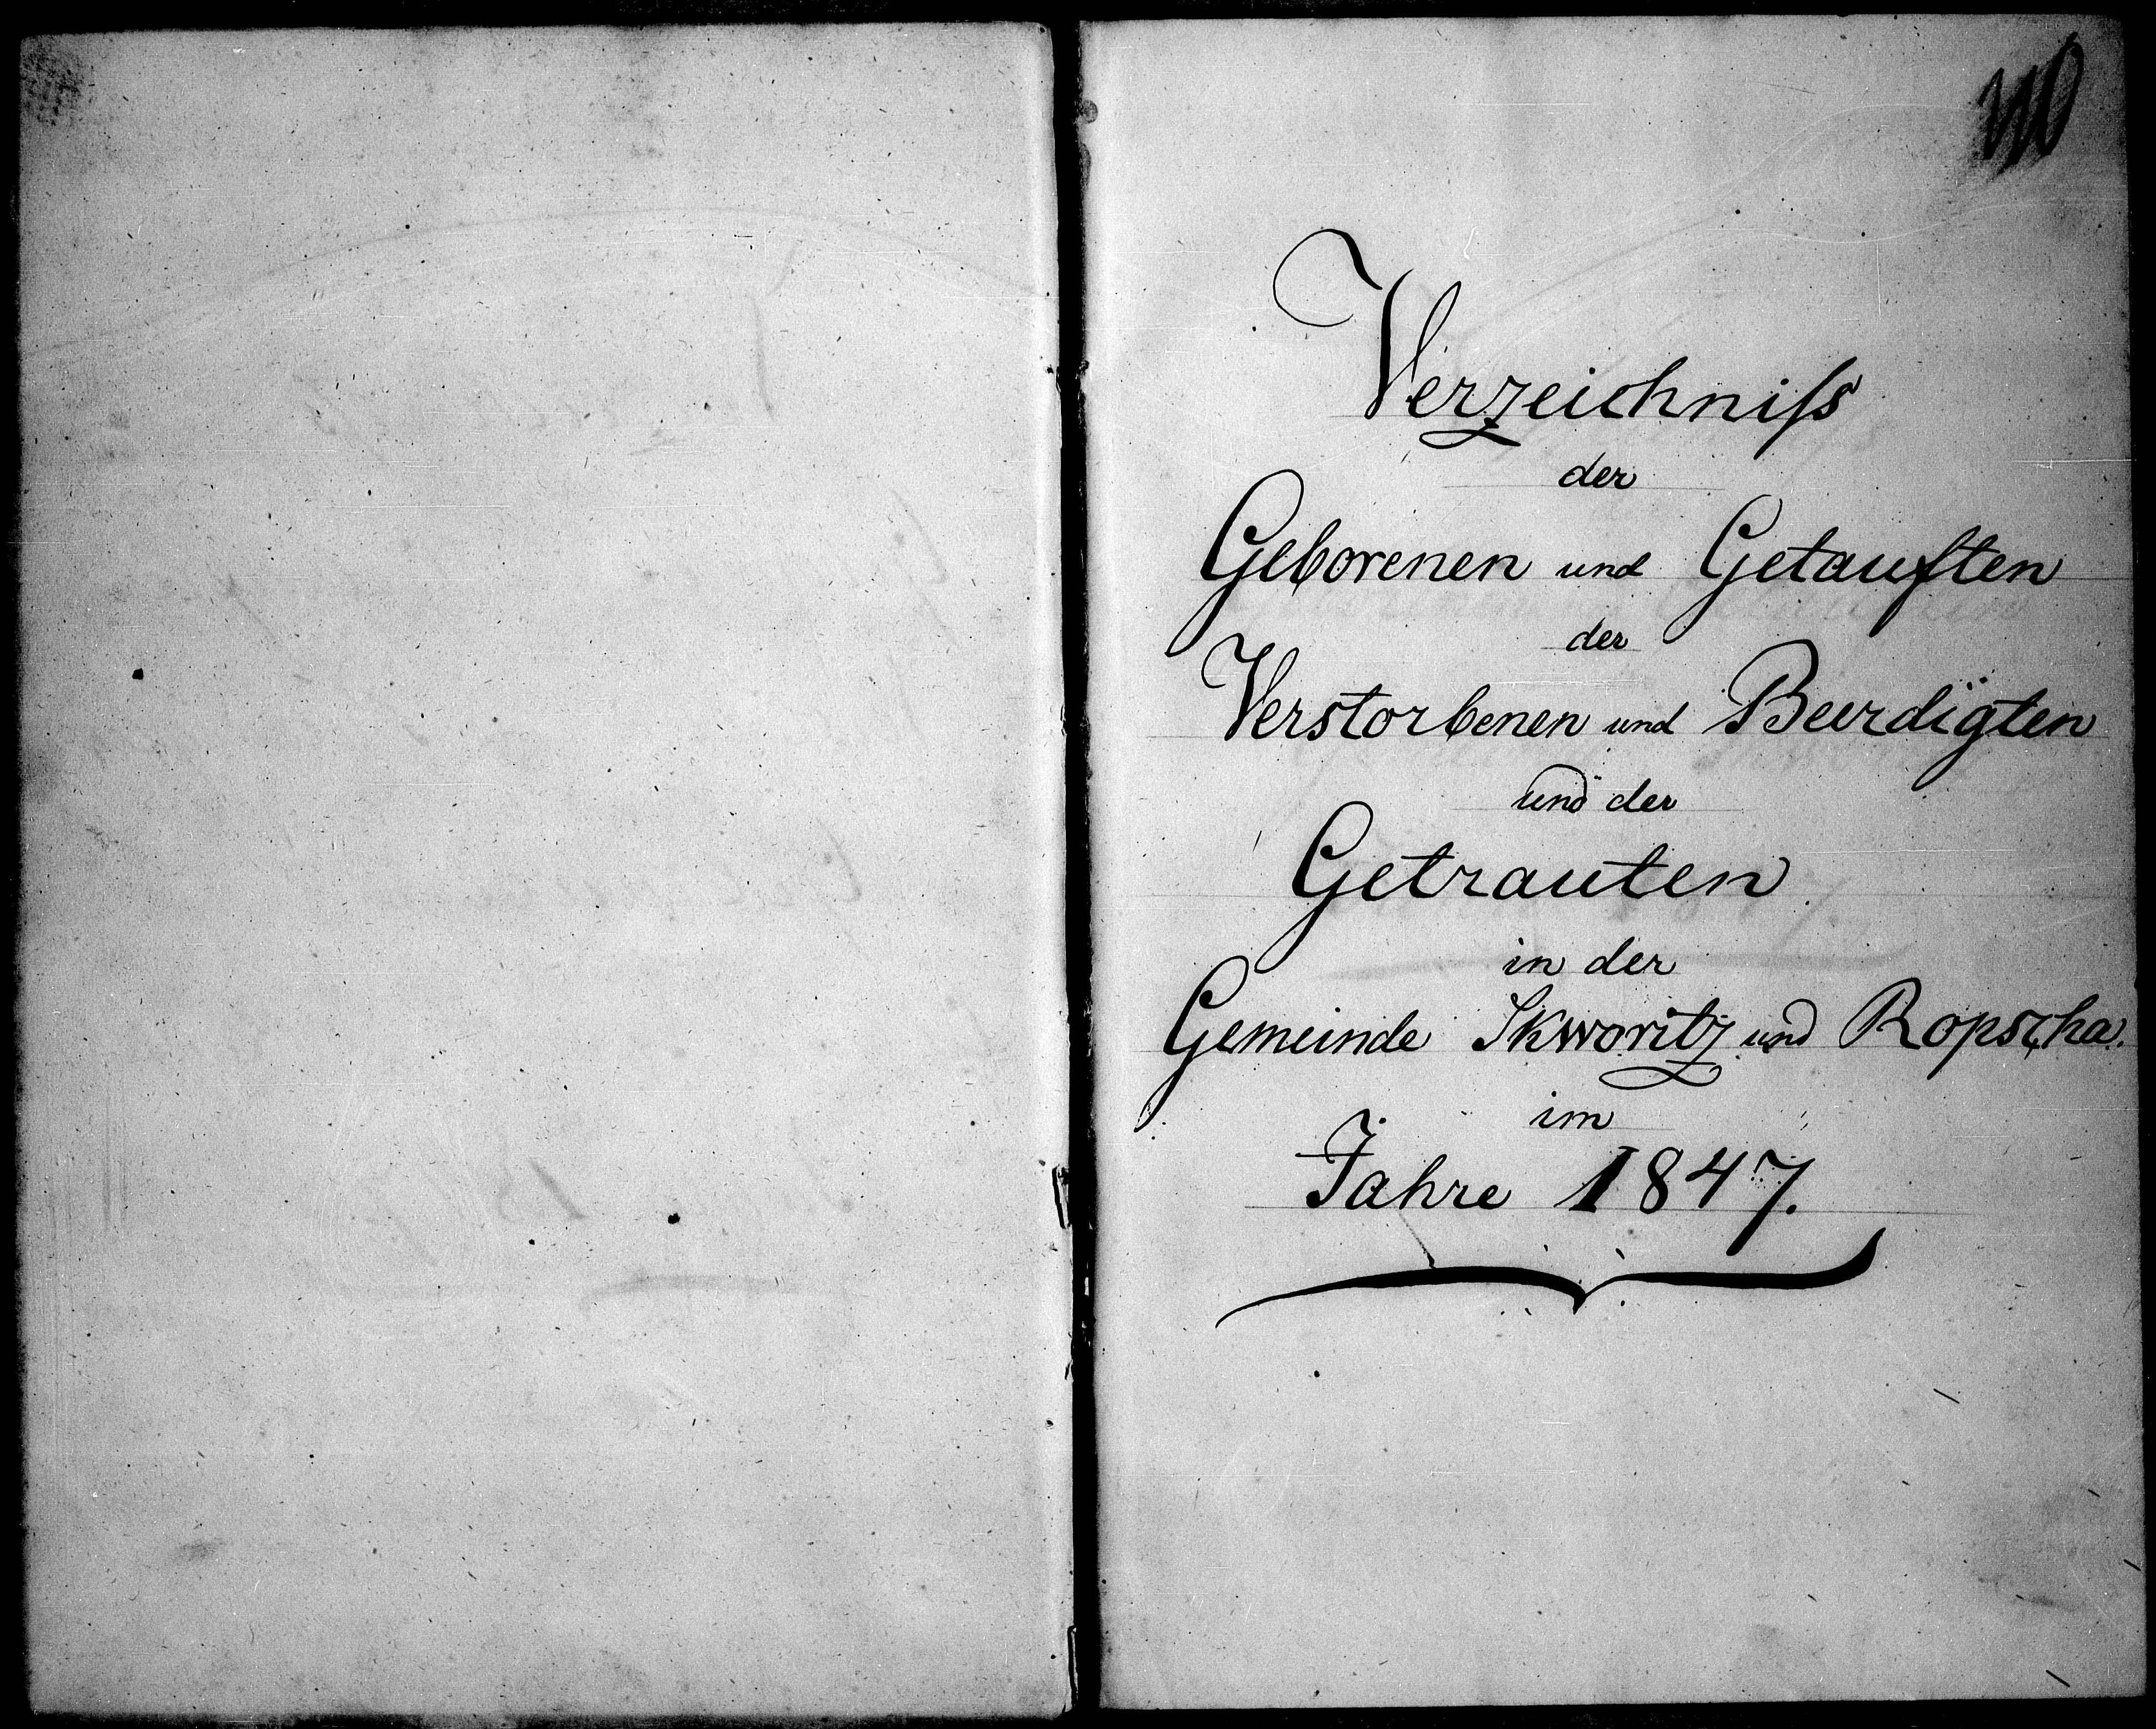 Verzeichniſs
der
Geborenen und Getauften
der
Verstorbenen und Beerdigten
und der
Getrauten
in der
Gemeinde Skworitz und Ropscha.
im
Jahre 1847.